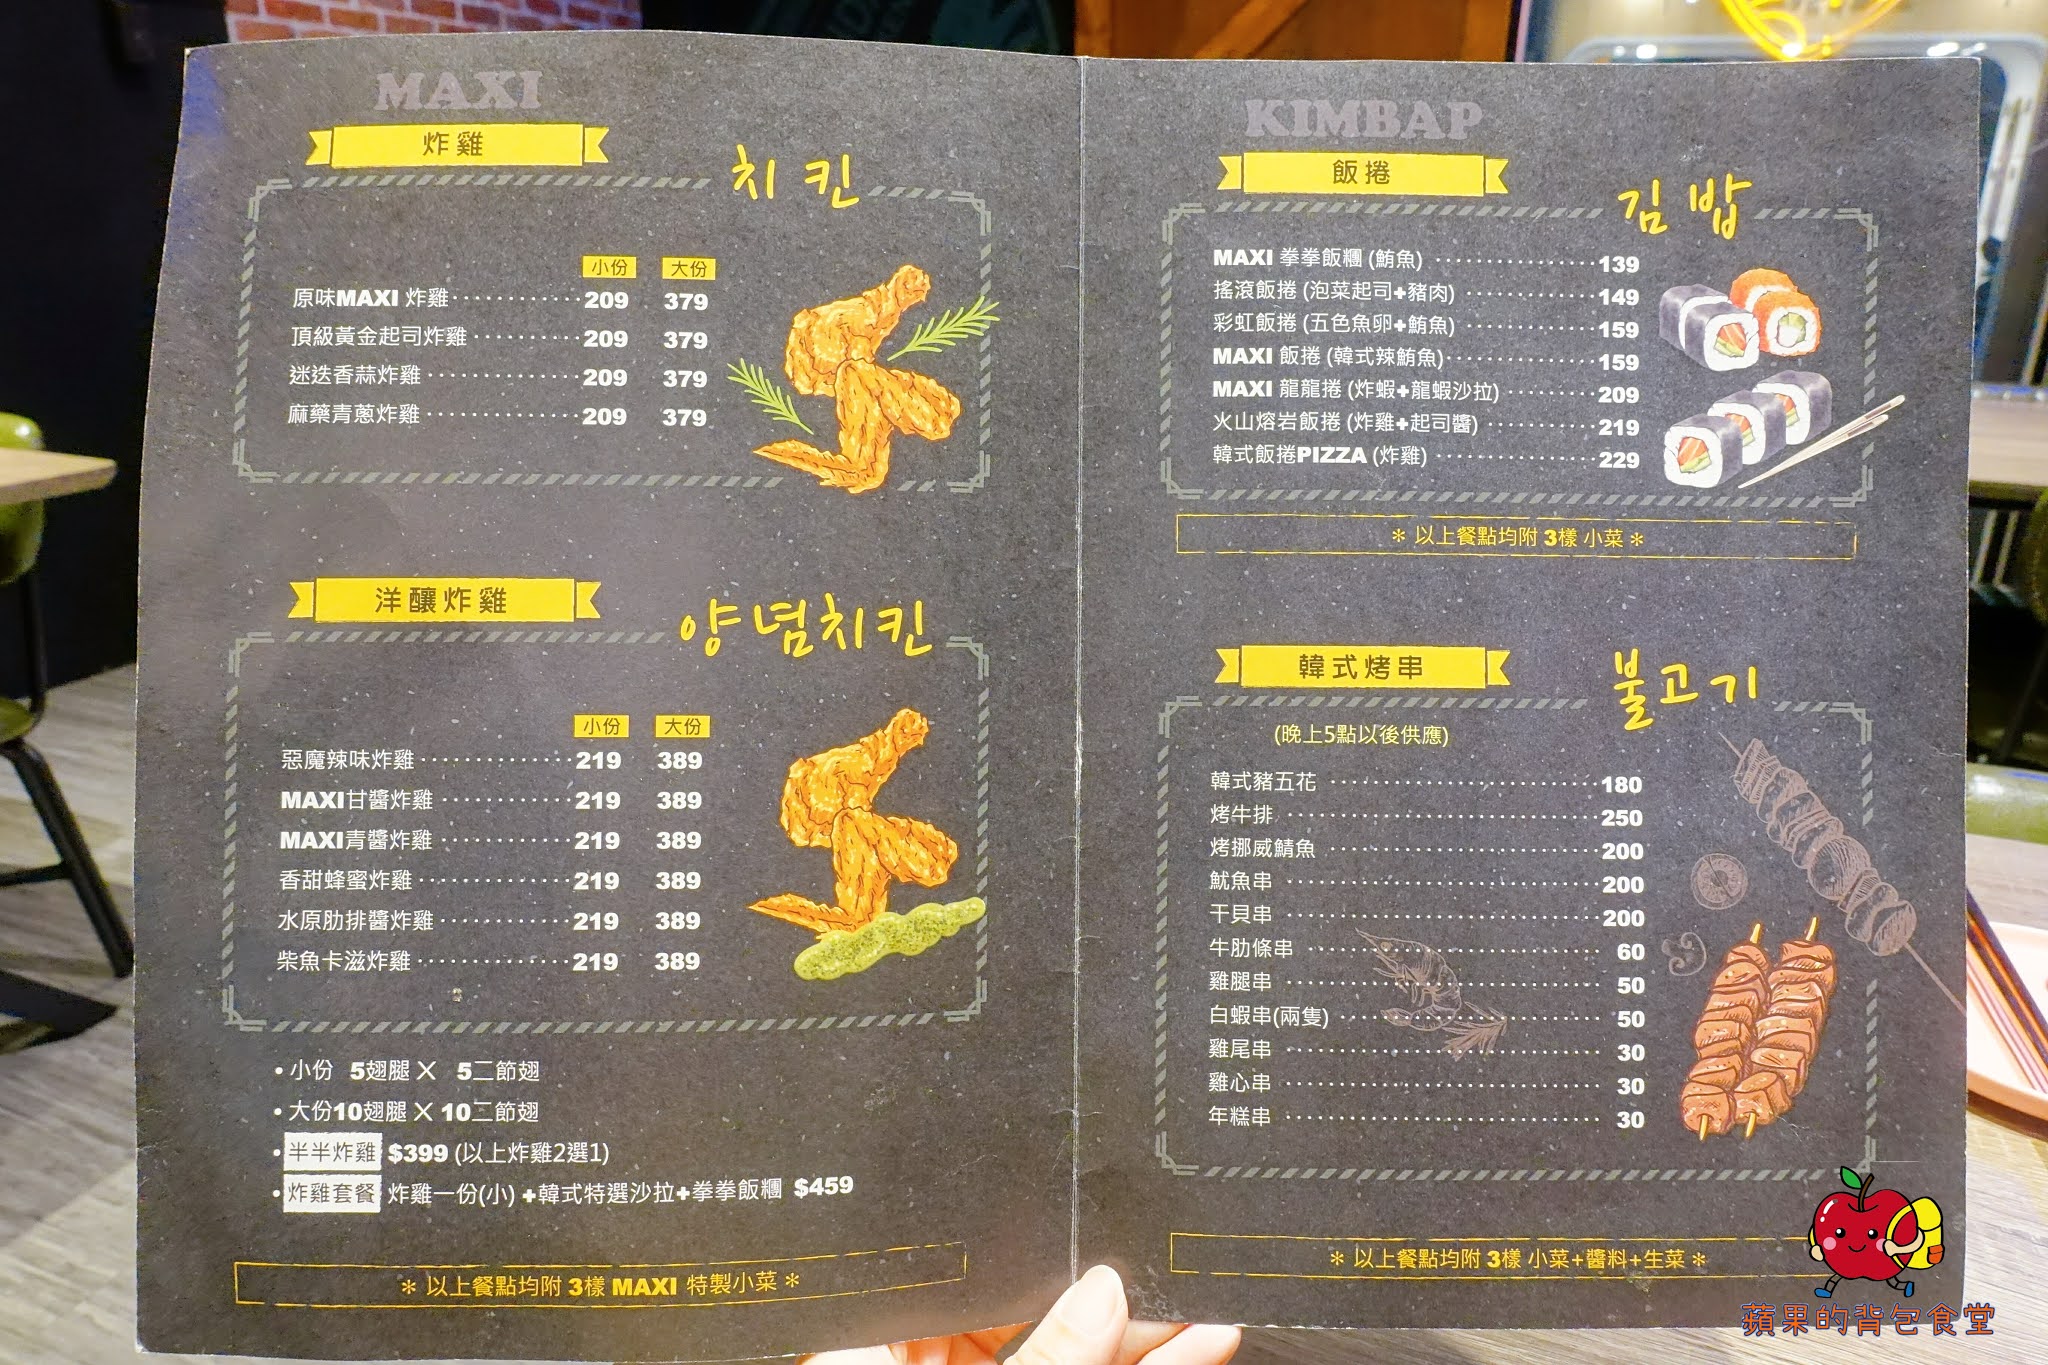 MAXI
炸雞
치킨
小份 大份
原味MAXI 炸雞 209 379
頂級黃金起司炸雞 209 379
迷迭香蒜炸雞 209 379
麻藥青蔥炸雞 209 379
洋釀炸雞
양념치킨
小份 大份
惡魔辣味炸雞 219 389
MAXI甘醬炸雞 219 389
MAXI青醬炸雞 219 389
香甜蜂蜜炸雞 219 389
水原肋排醬炸雞 219 389
柴魚卡滋炸雞 219 389
• 小份 5翅腿 X 5二節翅
• 大份10翅腿 X 10二節翅
• 半半炸雞 $399 (以上炸雞2選1)
• 炸雞套餐 炸雞一份(小) +韓式特選沙拉+拳拳飯糰 $459
＊ 以上餐點均附 3樣 MAXI 特製小菜 ＊
KIMBAP
飯捲
김밥
MAXI 拳拳飯糰 (鮪魚) 139
搖滾飯捲 (泡菜起司+豬肉) 149
彩虹飯捲 (五色魚卵+鮪魚) 159
MAXI 飯捲 (韓式辣鮪魚) 159
MAXI 龍龍捲 (炸蝦+龍蝦沙拉) 209
火山熔岩飯捲 (炸雞+起司醬) 219
韓式飯捲PIZZA (炸雞) 229
＊ 以上餐點均附 3樣 小菜 ＊
韓式烤串
불고기
(晚上5點以後供應)
韓式豬五花 180
烤牛排 250
烤挪威鯖魚 200
魷魚串 200
干貝串 200
牛肋條串 60
雞腿串 50
白蝦串(兩隻) 50
雞尾串 30
雞心串 30
年糕串 30
＊ 以上餐點均附 3樣 小菜+醬料+生菜 ＊
蘋果的背包食堂